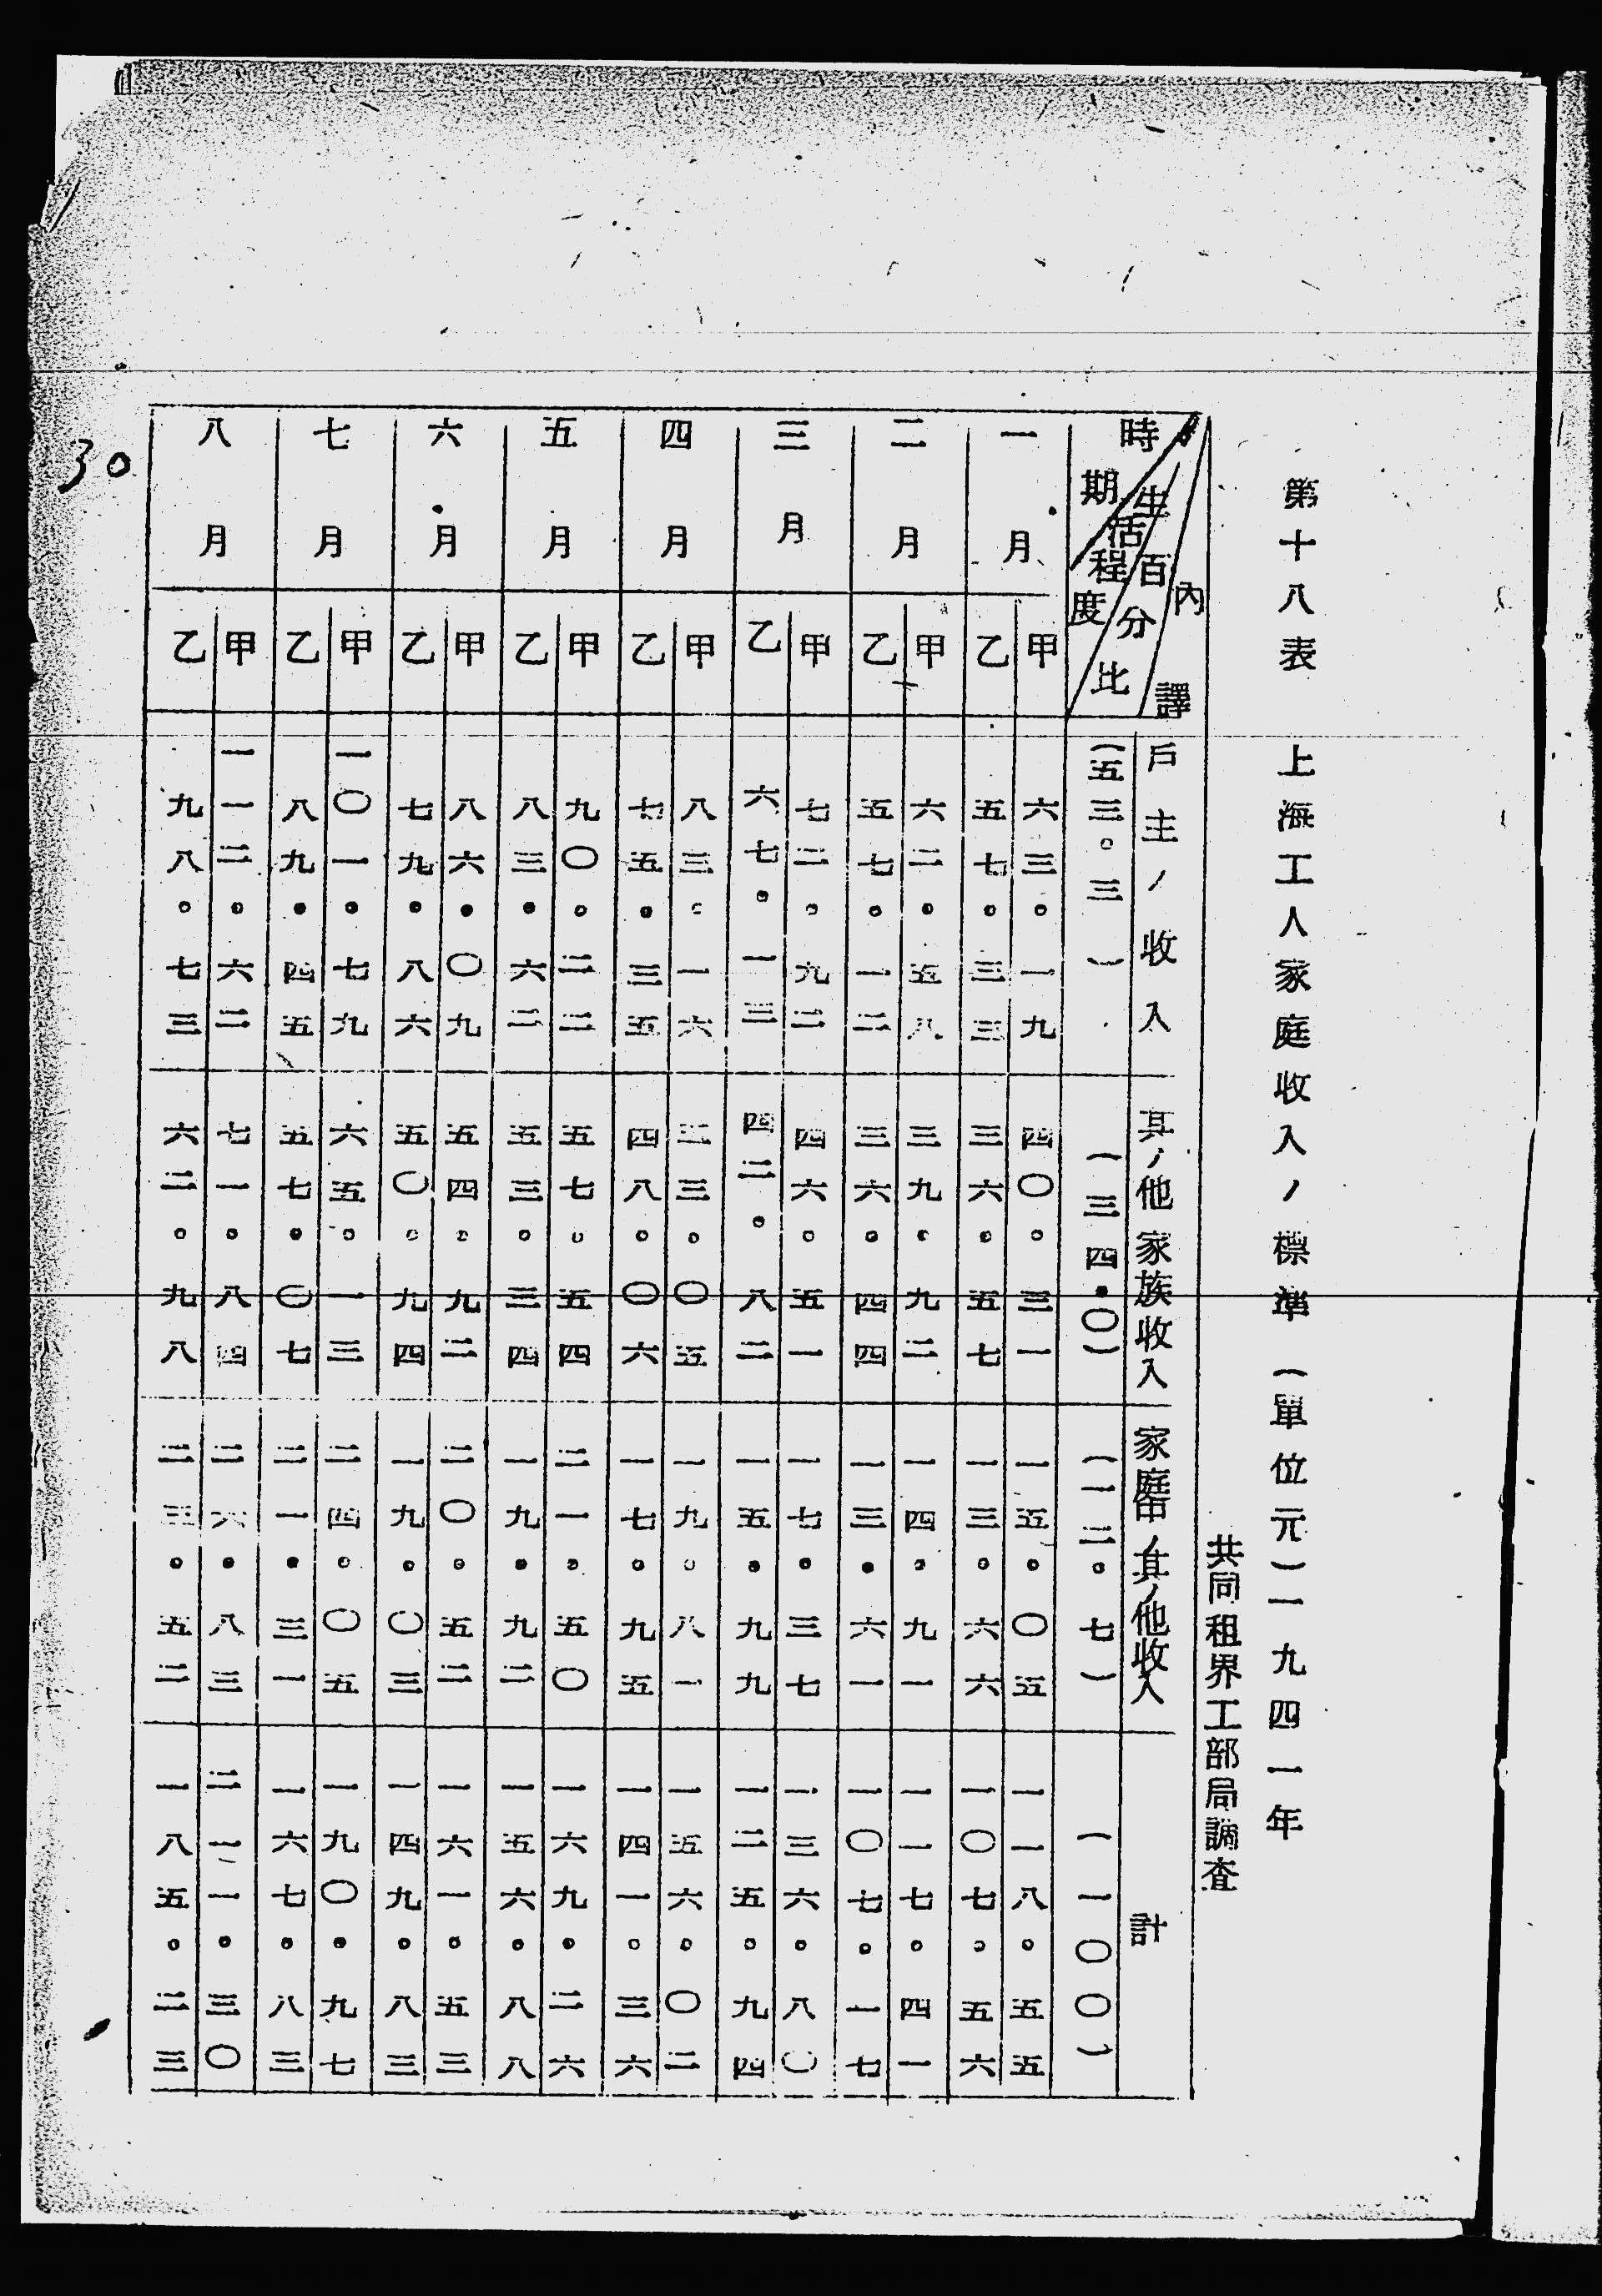 第十八表　上海工人家庭收入ノ標準　(單位元)一九四一年
共同租界工部局調査
內譯　戶主ノ收入　其ノ他家族收入　家庭中ノ其ノ他收入　計
百分比　(五三。三)　(三四•〇)　(一二。七)　(一〇〇)
生活程度
時期
一月　甲　六三。一九　四〇。三一　一五。〇五　一一八。五五
乙　五七。三三　三六。五七　一三。六六　一〇七。五六
二月　甲　六二。五八　三九。九二　一四。九一　一一七。四一
乙　五七。一二　三六。四四　一三•六一　一〇七。一七
三月　甲　七二。九二　四六。五一　一七。三七　一三六。八〇
乙　六七。一三　四二。八二　一五。九九　一二五。九四
四月　甲　八三。一六　三。〇五　一九。八一　一五六。〇二
乙　七五。三五　四八。〇六　一七。九五　一四一。三六
五月　甲　九〇。二二　五七。五四　二一。五〇　一六九。二六
乙　八三。六二　五三。三四　一九。九二　一五六。八八
六月　甲　八六。〇九　五四。九二　二〇。五二　一六一。五三
乙　七九。八六　五〇。九四　一九。〇三　一四九。八三
七月　甲　一〇一。七九　六五。一三　二四。〇五　一九〇。九七
乙　八九。四五　五七。〇七　二一。三一　一六七。八三
八月　甲　一一二。六二　七一。八四　二六。八三　二一一。三〇
乙　九八。七三　六二。九八　二三。五二　一八五。二三
30